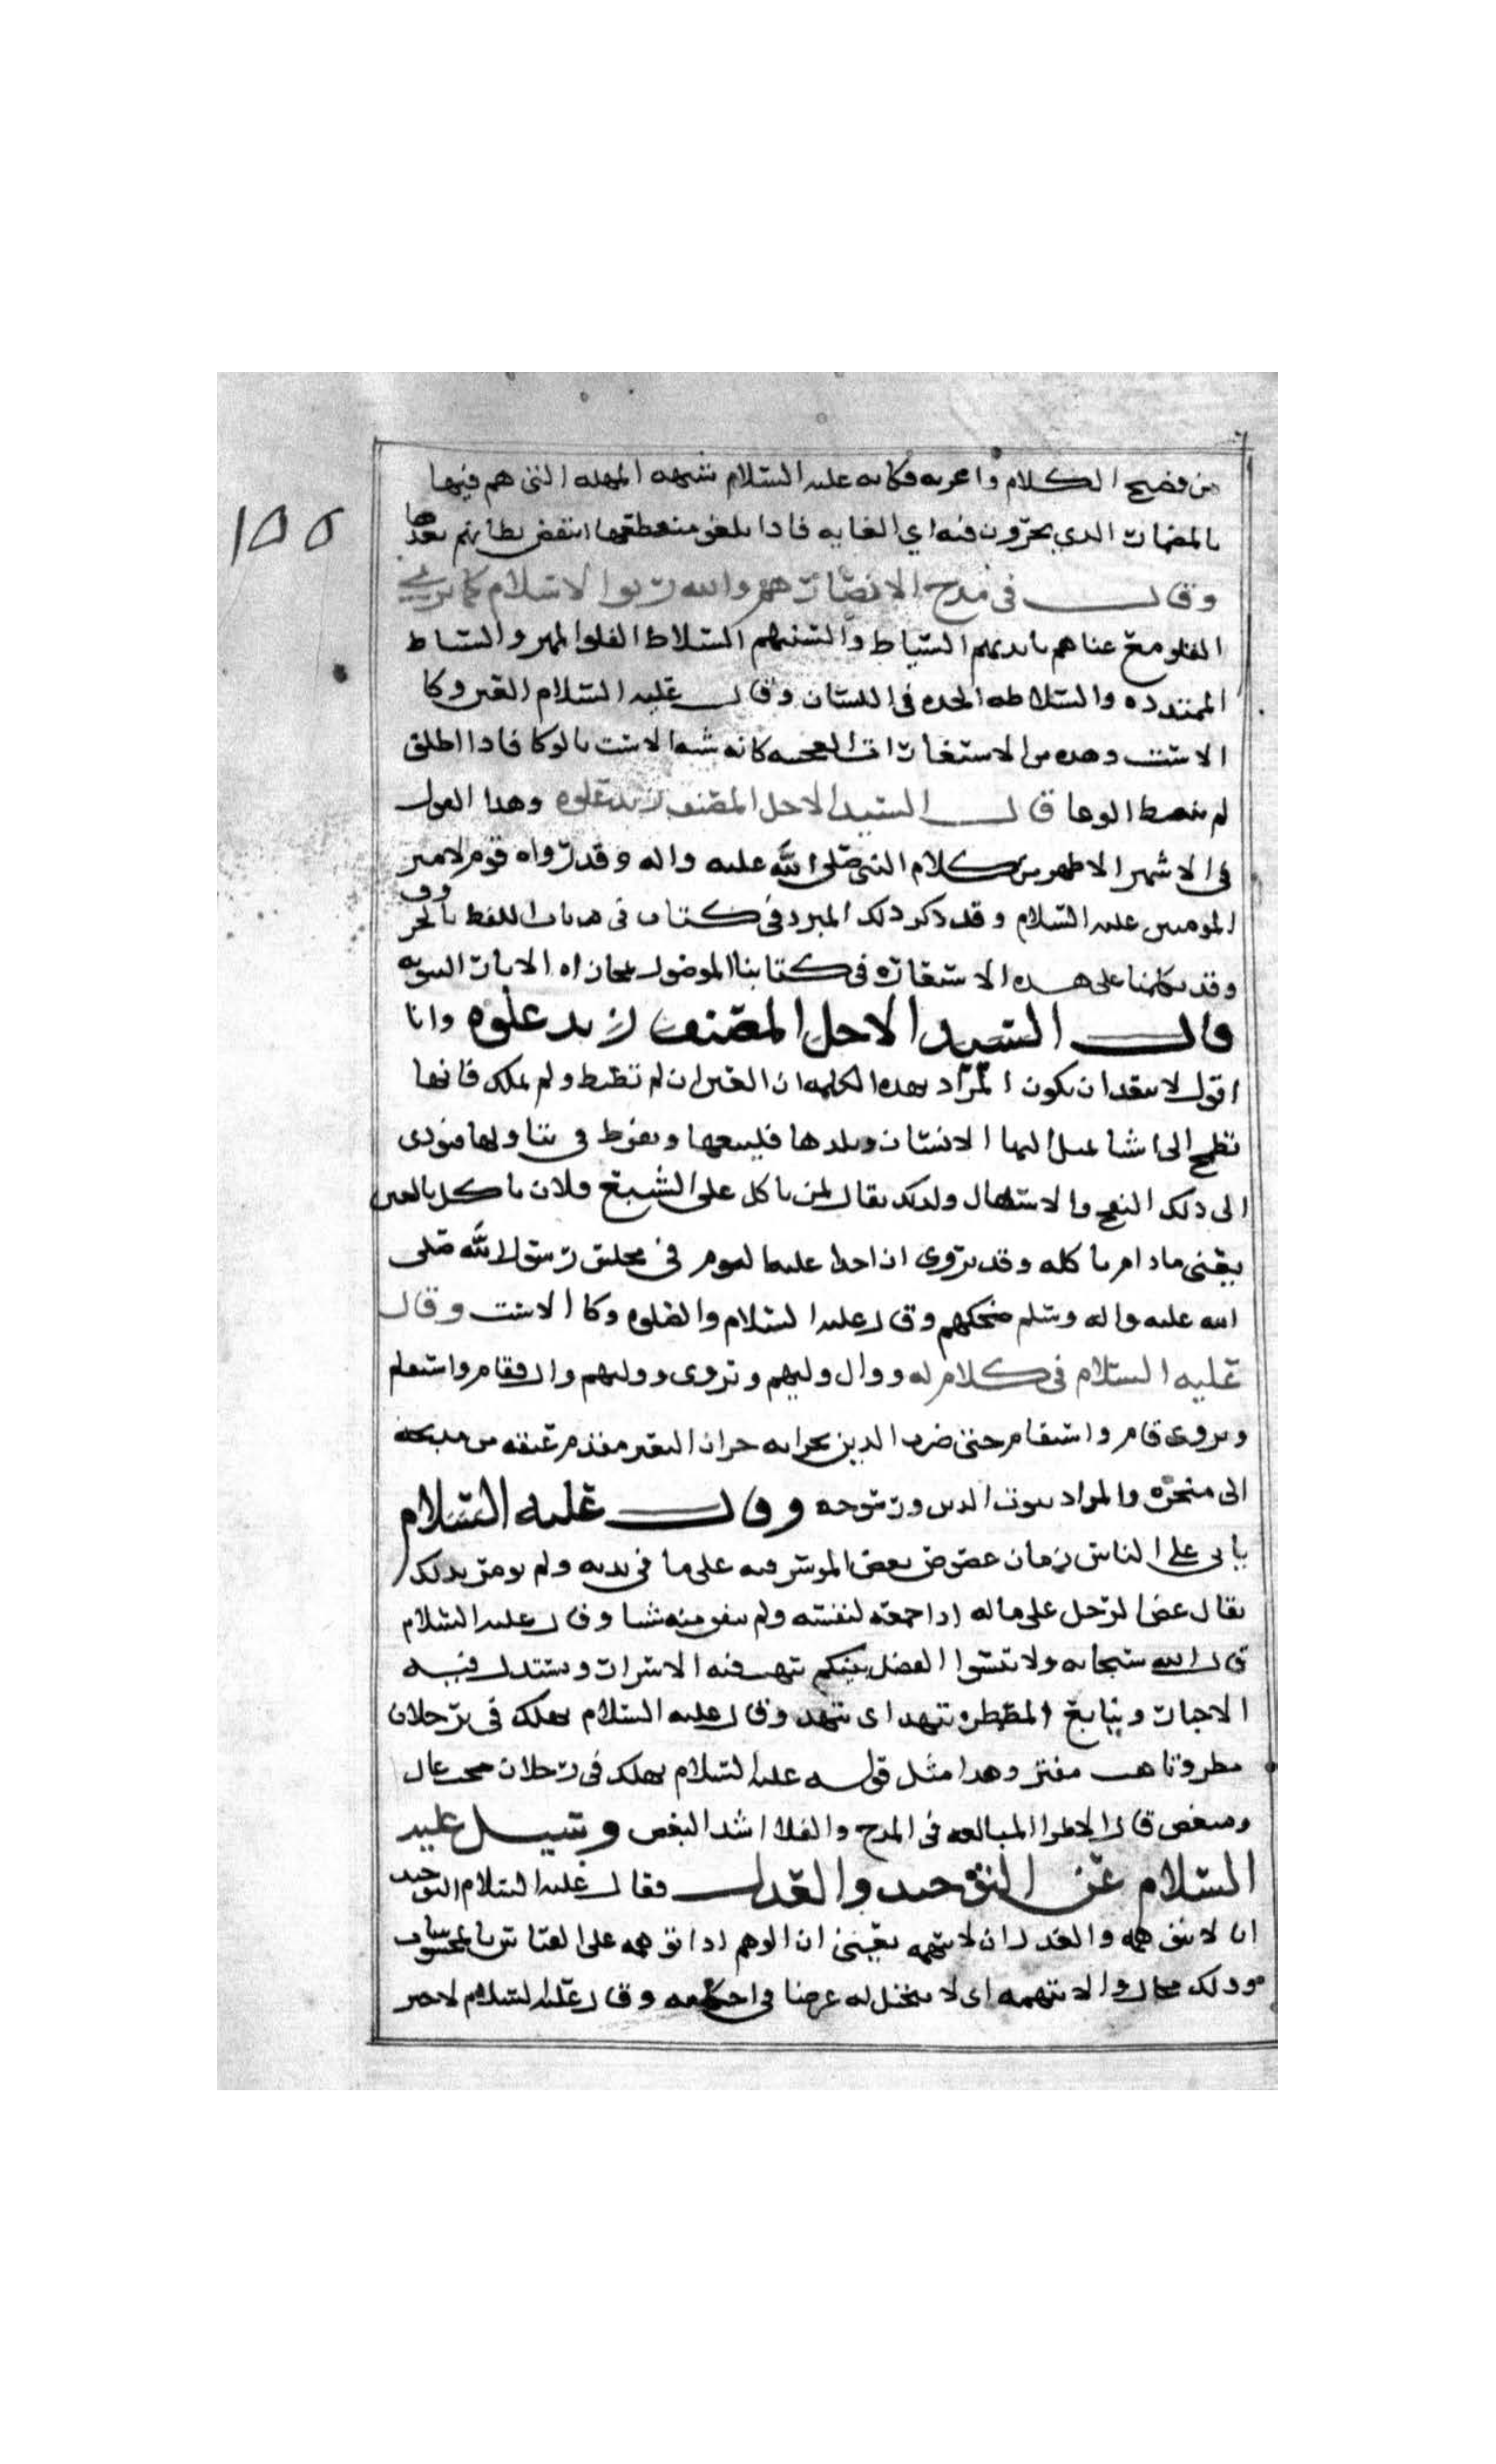 من فصيح الكلام واغربه فكانه عليه السلام شبهه المهله التي هم فيها
بالمضمار الدي يجرون فيه اي الغايه فادا بلغو منقطعها انتقض نظامهم بعدها
وقال في مدح الانصار هم والله ربوا الاسلام كما يربي
الفلو مع عناهم بايديهم السياط والسنتهم السلاط الفلو المهر والسباط
الممتدده والسلاطه الحده في اللسان وقال عليه السلام العين وكا
الاست وهده من الاستعارات العجيبه كانه شبه الاست بالوكا فادا اطلق
لم ينضبط الوعا قال السيد الاجل المصنف زيد علوه وهدا القول
في الاشهر الاظهر من كلام النبي صلى الله عليه واله وقد رواه قوم لامير
المومنين عليه السلام وقد دكر دلك المبرد في كتاب في باب اللفظ بالحروف
وقد تكلمنا على هده الاستعاره في كتابنا الموضول بمجازاه الاثار النبويه
قال السيد الاجل المصنف زيد علوه وانا
اقول لا يبعد ان يكون المراد بهده الكلمه ان العين ان لم تضبط ولم تملك فانها
تطمح الى اشيا يميل اليها الانسان ويلدها فيتبعها ويفرط في تناولها فيودي
الى دلك النفج والاستطهال ولدلك يقال لمن ياكل على الشبع فلان ياكل بالعين
يعني مادام ياكله وقد يروى ان احدا عليها لقوم في مجلس رسول الله صلى
الله عليه واله وسلم ضحكهم وقال عليه السلام والعلوم وكا الاست وقال
عليه السلام في كلام له ووال وليهم وتروى ووليهم وال فقام واستعلم
ويروى قام واستقام حتى ضرب الدين بجرانه جران البعير مقدم عنقه من مدبحه
الى منحره والمراد ثبوت الدين ورسوخه وقال عليه السلام
ياتي على الناس زمان عضوض يعض الموسر فيه على ما في يديه ولم يومر بدلك
يقال عض الرجل على ماله ادا جمعه لنفسه ولم ينفق منه شيا وقال عليه السلام
قال الله سبحانه ولا تنسوا الفضل بينكم تنهد فيه الاشرار ويستدل فيه
الاخيار ويبايع المضطرون تنهد اى تنهد وقال عليه السلام يهلك في رجلان
مطر وباهت مفتر وهدا مثل قوله عليه السلام يهلك في رجلان محب غال
ومبغض قال الاطرا المبالغه في المدح والقلا اشد البغض وسيل عليه
السلام عن التوحيد والعدل فقال عليه السلام التوحيد
ان لا تتوهمه والعدل ان لا تتهمه يعني ان الوهم ادا توهمه على القياس بالمحسوسات
ودلك محال وان لا تتهمه اى لا يتخيل له غرضا في احكامه وقال عليه السلام لا خير